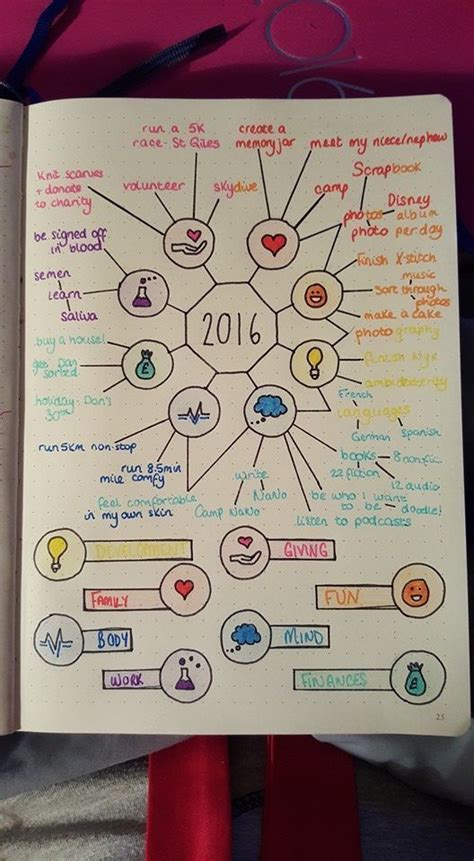 run a 5K
race - St Giles
create a
memory jar
meet my niece/nephew
Knit scarves
+ donate
to charity
volunteer
skydive
camp
Scrapbook
Disney
photos album
photo per day
be signed off
in blood
semen
learn
saliva
Finish X-stitch
music
sort through
photos
make a cake
photography
2016
buy a house!
get Dan
sorted
holiday - Dan's
30th
finish Nyx
ambidexterity
French
languages
German Spanish
run 5km non-stop
run 8.5min
mile comfy
feel comfortable
in my own skin
write
NaNo
Camp NaNo
books - 8 nonfic
22 fiction
12 audio
be who I want
to be - doodle!
listen to podcasts
DEVELOPMENT
GIVING
FAMILY
FUN
BODY
MIND
WORK
FINANCES
25